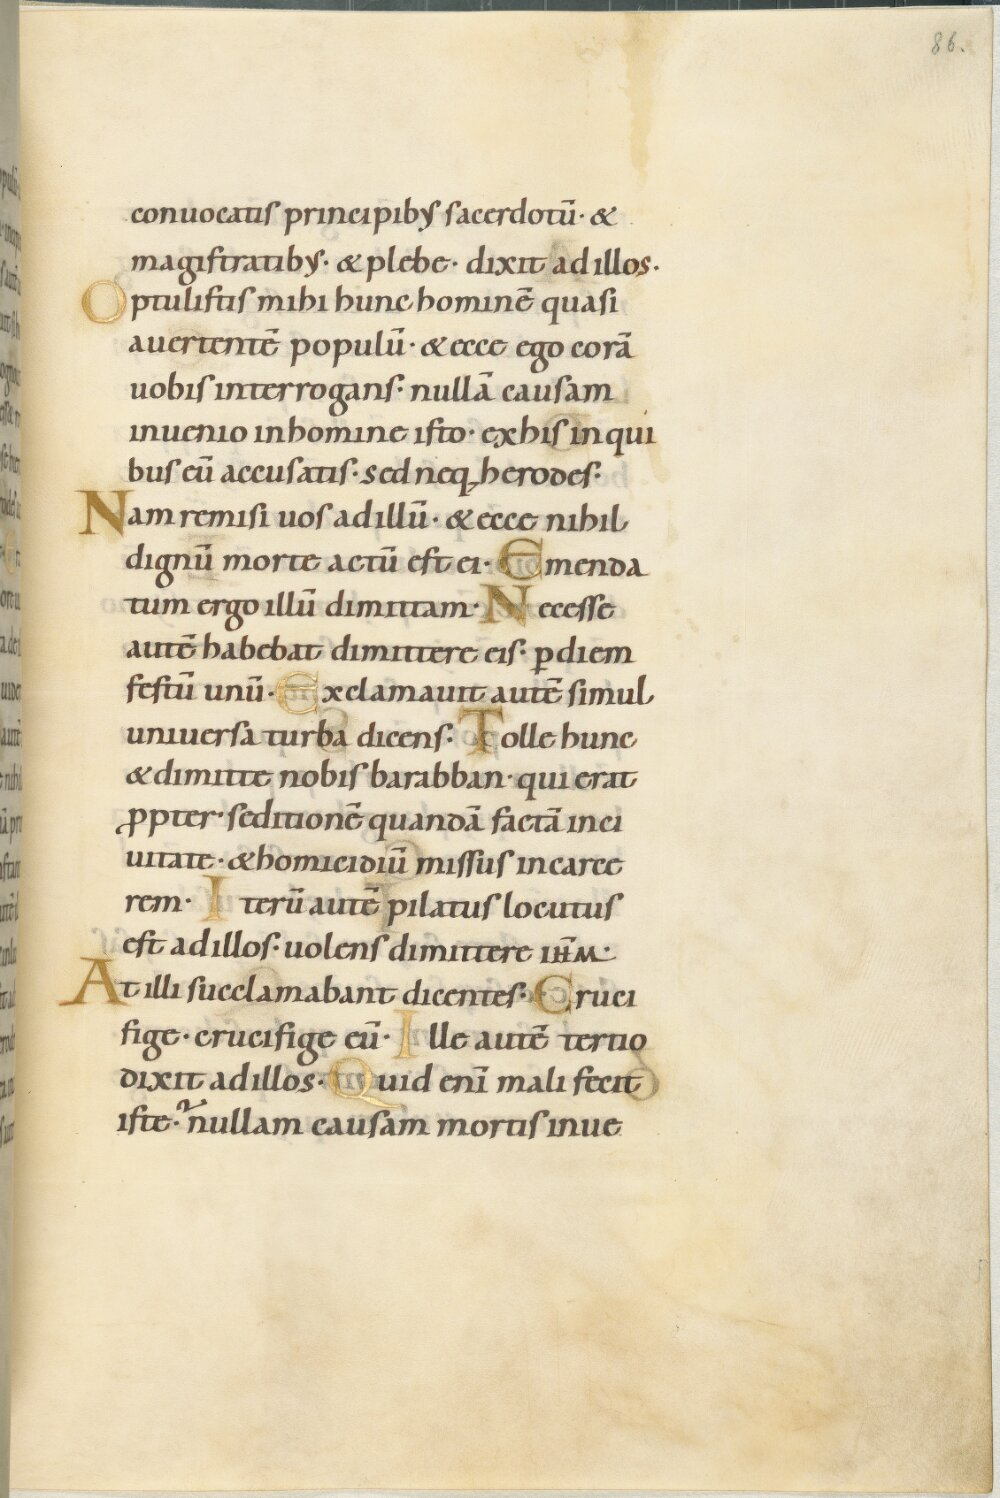 86.
conuocatis principib; sacerdotū· &
magistratib;· & plebe· dixit ad illos·
Optulistis mihi hunc hominē quasi
auertentē populū· & ecce ego corā
uobis interrogans· nullā causam
inuenio in homine isto· ex his in qui
bus eū accusatis· sed neq; herodes·
Nam remisi uos ad illū· & ecce nihil
dignū morte actū est ei· Emenda
tum ergo illū dimittam· Necesse
autē habebat dimittere eis· ꝑ diem
festū unū· Exclamauit autē simul
uniuersa turba dicens· Tolle hunc
& dimitte nobis barabban· qui erat
ꝓpter· seditionē quandā factā in ci
uitate· & homicidiū missus in carce
rem· Iterū autē pilatus locutus
est ad illos· uolens dimittere ihm̄·
At illi succlamabant dicentes· Cruci
fige· crucifige eū· Ille autē tertio
dixit ad illos· Quid enī mali fecit
iste·̃ nullam causam mortis inue